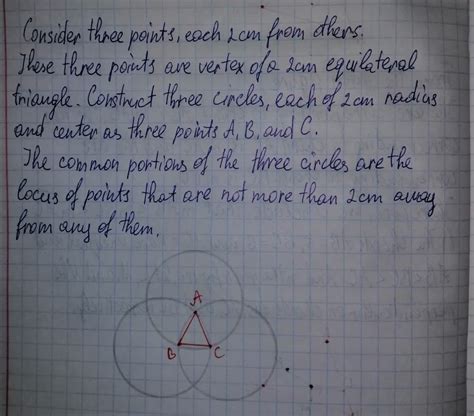 Consider three points, each 2cm from others.
These three points are vertex of a 2cm equilateral
triangle. Construct three circles, each of 2cm radius
and center as three points A, B, and C.
The common portions of the three circles are the
locus of points that are not more than 2cm away
from any of them.
A
B
C